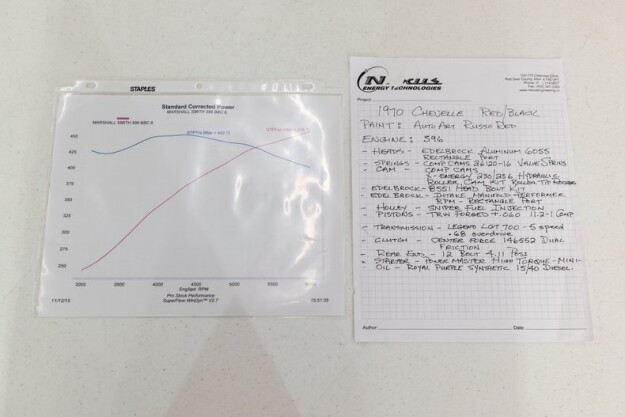 STAPLES
Standard Corrected Power
MARSHALL SMITH 396 BBC 6
MARSHALL SMITH 396 BBC 6
450
425
400
375
350
325
300
275
250
3000
3500
4000
4500
5000
5500
6000
EngSpd RPM
11/12/15
Pro Stock Performance
SuperFlow WinDyn™ V2.7
15:51:35
ENERGY TECHNOLOGIES
Project
1970 CHEVELLE RED/BLACK
PAINT: AUTO ART RUSSO RED
ENGINE: 396
- HEADS - EDELBROCK ALUMINUM 6055
RECTANGLE PORT
- SPRINGS - COMP CAMS 26120-16 VALVE SPRINGS
- CAM - COMP CAMS
X-ENERGY 230/236 HYDRAULIC
ROLLER, CAM KIT
- EDELBROCK - 8551 HEAD BOLT KIT
- EDELBROCK - INTAKE MANIFOLD PERFORMER
RPM - RECTANGLE PORT
- HOLLEY - SNIPER FUEL INJECTION
- PISTONS - TRW FORGED +.060 11.2-1 COMP
- TRANSMISSION - LEGEND LGT 700 - 5 SPEED
.68 overdrive
- CLUTCH - CENTER FORCE 146552 DUAL
FRICTION
- REAR END - 12 BOLT 4.11 POSI
- STARTER - POWER MASTER HIGH TORQUE - MINI
- OIL - ROYAL PURPLE SYNTHETIC 15/40 DIESEL
Author
Date